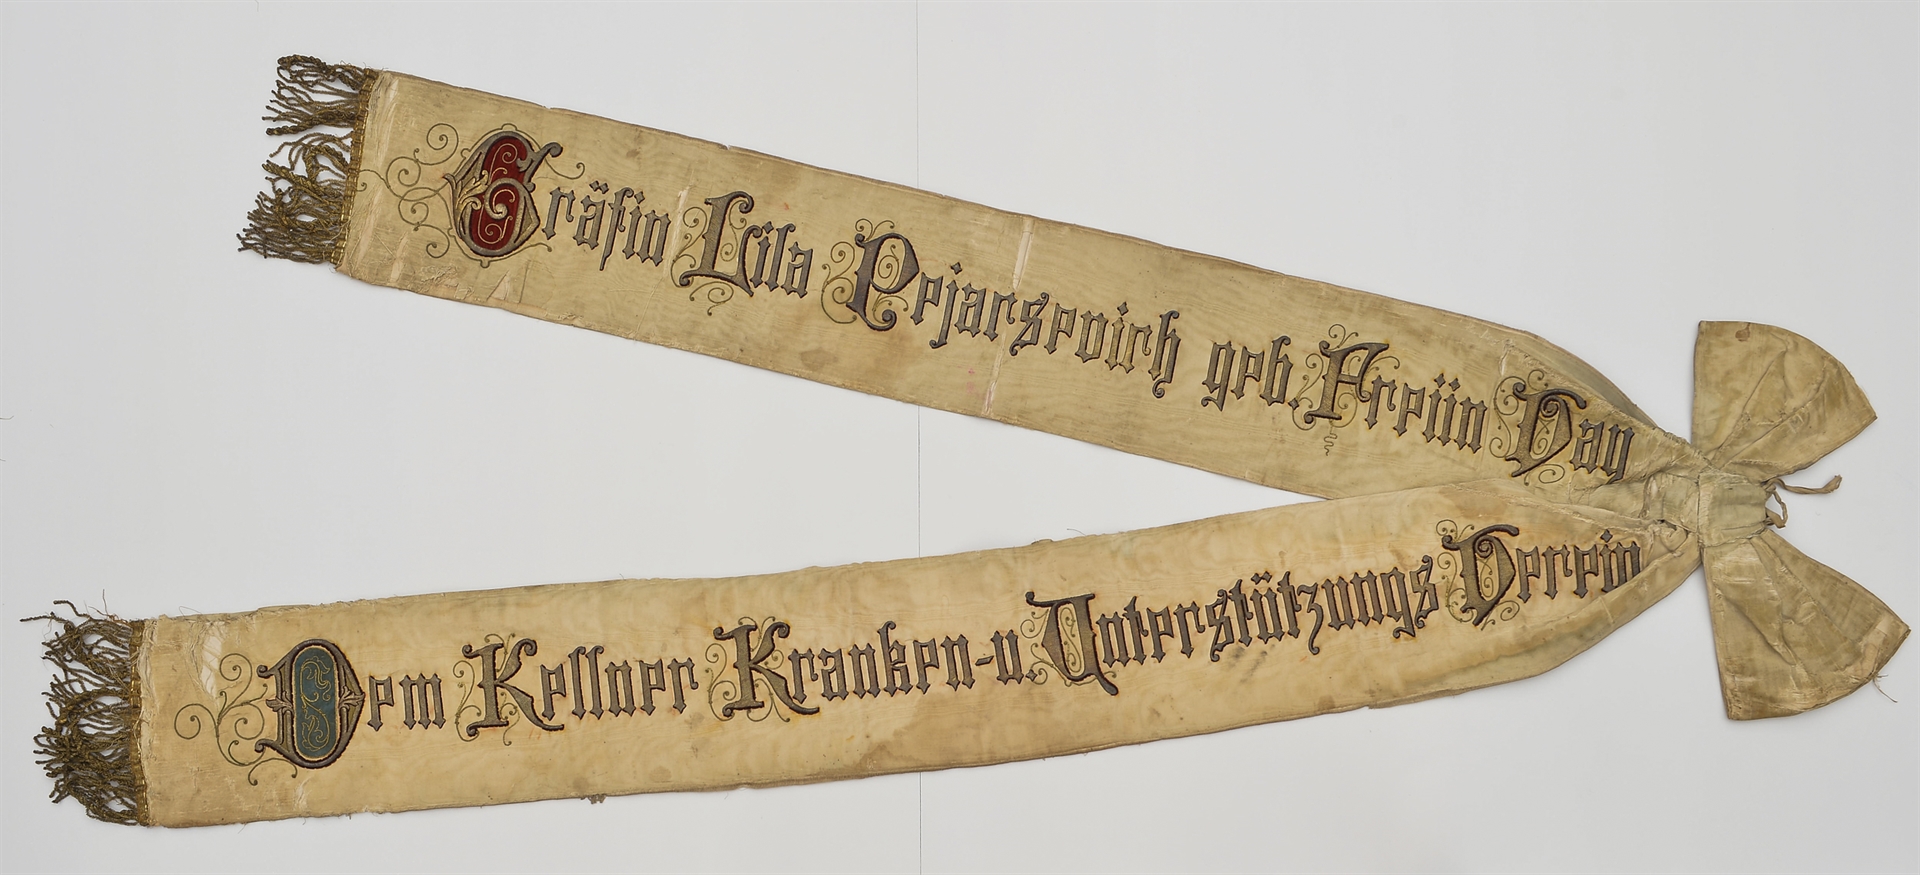 Gräfin Lila Pejarsevich geb. Freiin Vay
Dem Kellner Kranken-u. Unterstützungs Verein